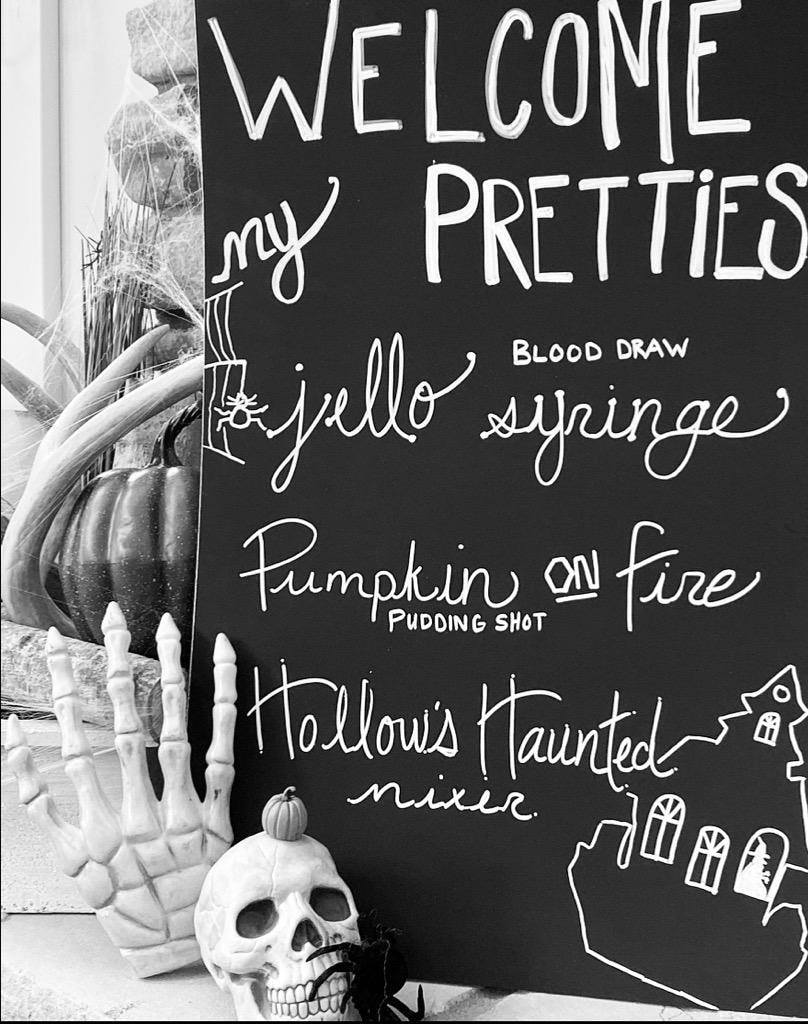 WELCOME
my PRETTiES
BLOOD DRAW
jello syringe
Pumpkin ON fire
PUDDING SHOT
Hollow's Haunted
mixer.